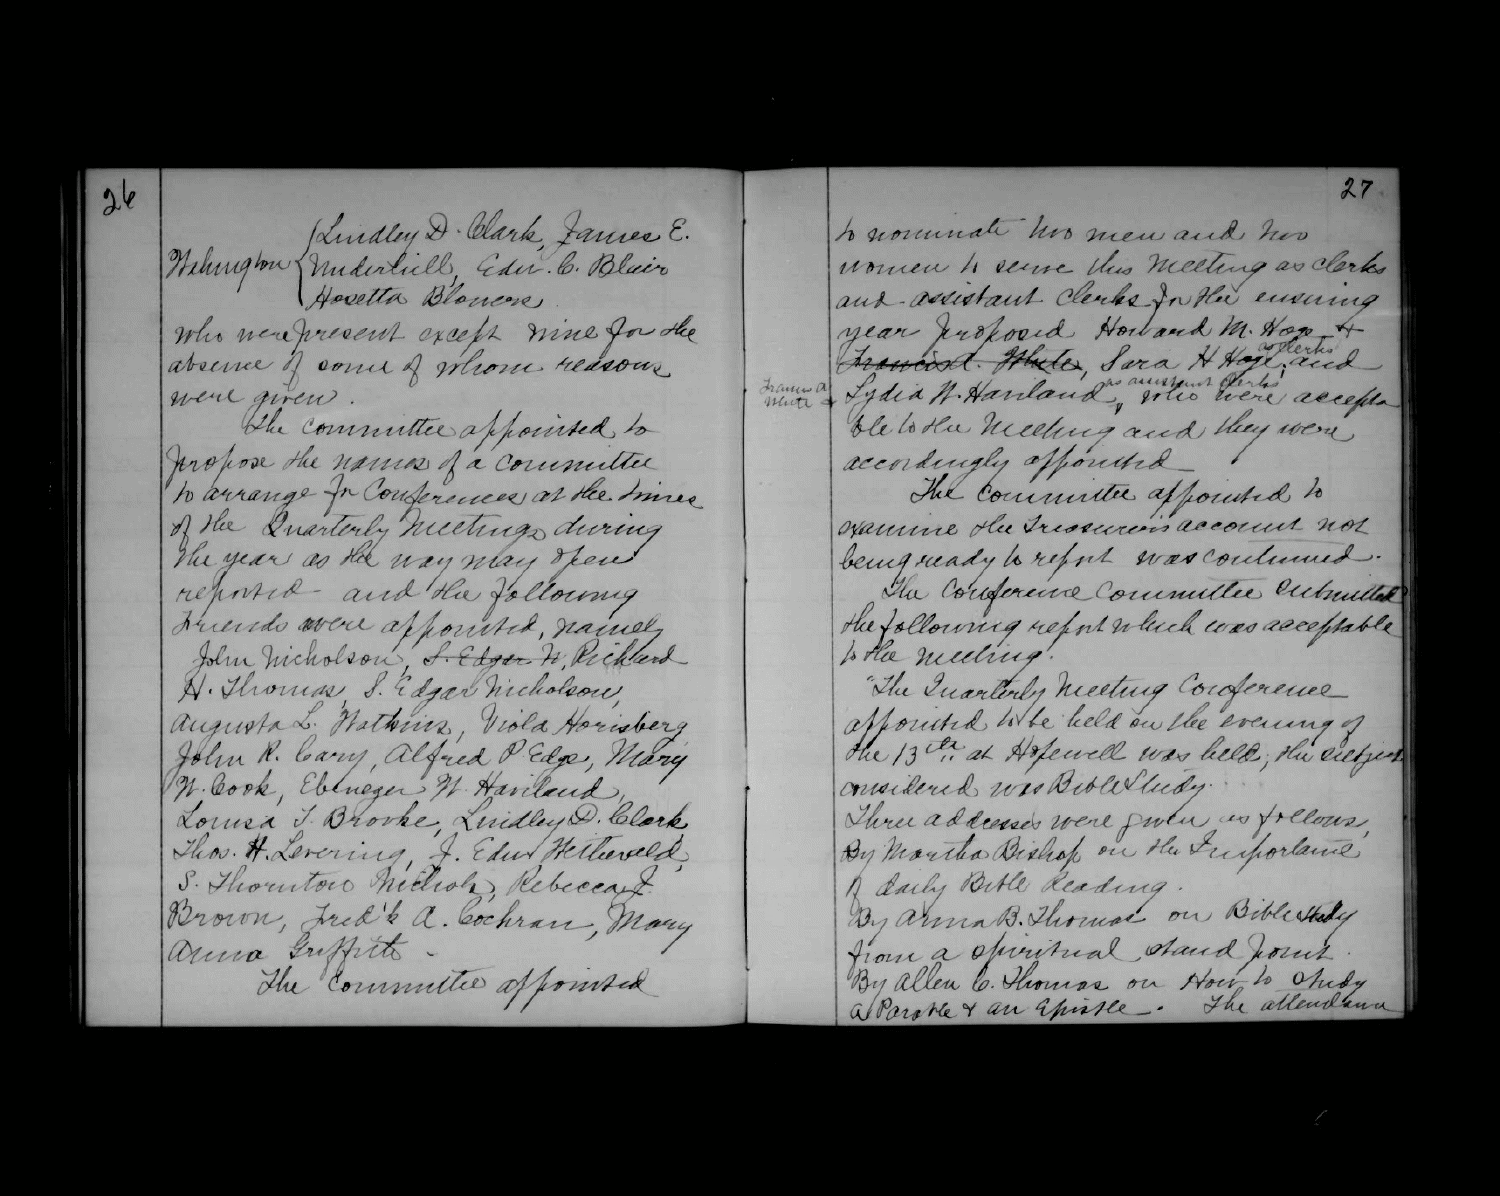 26
Lindley D. Clark, James E.
Washington Underhill, Edw. C. Blair
Hosetta Blowers
who were present except nine for the
absence of some of whom reasons
were given.
The committee appointed to
propose the names of a committee
to arrange for Conferences at the times
of the Quarterly Meetings during
the year as the way may open
reported and the following
Friends were appointed, namely
John Nicholson, S. Edgar N, Richard
H. Thomas, S. Edgar Nicholson,
Augusta L. Watkins, Viola Horisberg
John R. Cary, Alfred P Edge, Mary
W. Cook, Ebenezer W. Haviland,
Louisa T. Brooke, Lindley D. Clark,
Thos. H. Levering, J. Edw
S. Thornton Nichols, Rebecca J.
Brown, Fred'k A. Cochran, Mary
Anna Griffith -
The Committee appointed
27
to nominate two men and two
women to serve this Meeting as clerks
and assistant clerks for the ensuing
year proposed Howard M. Hoge &
as clerks
Francis A. White, Sara H Hoge, and
as assistant clerks
Francis A
White
Lydia W. Haviland, who were accepta
ble to the Meeting and they were
accordingly appointed
The committee appointed to
examine the Treasurer's account not
being ready to report was continued.
The Conference Committee submitted
the following report which was acceptable
to the meeting.
"The Quarterly Meeting Conference
appointed to be held on the evening of
the 13th. at Hopewell was held; the subject
considered was Bible Study.
Three addresses were given as follows,
By Martha Bishop on the Importance
of daily Bible Reading.
By Anna B. Thomas on Bible Study
from a spiritual stand point.
By Allen C. Thomas on How to study
a Parable & an Epistle. The attendance